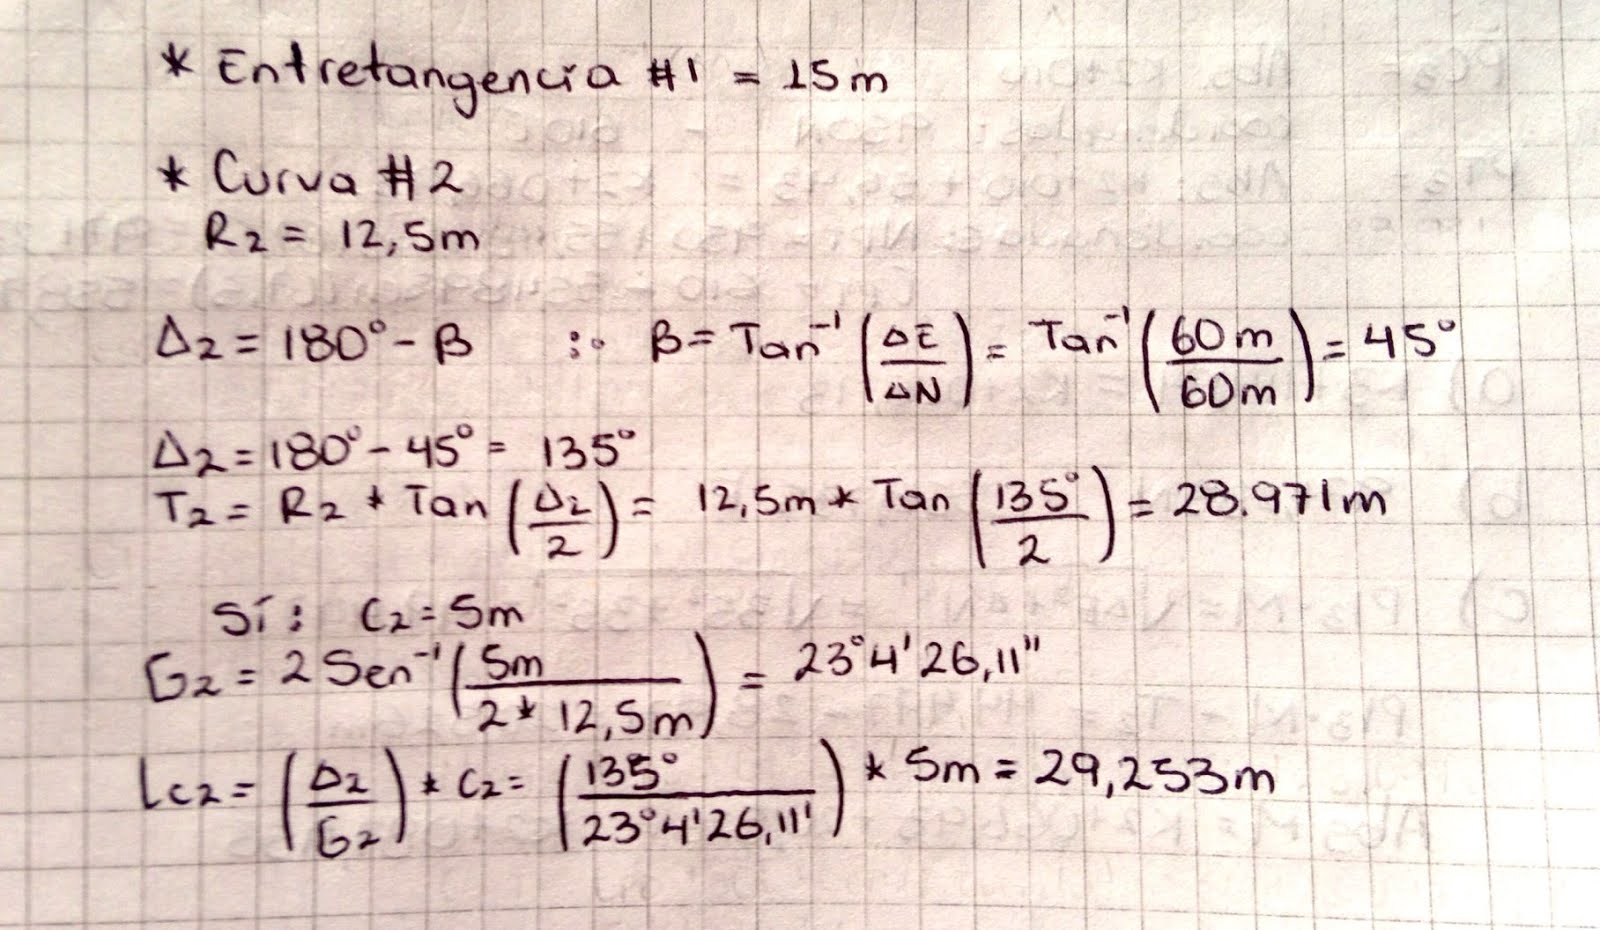 * Entretangencia #1 = 15m
* Curva #2
R2 = 12,5m
Δ2 = 180° - β :. β = Tan⁻¹ (ΔE/ΔN) = Tan⁻¹ (60m/60m) = 45°
Δ2 = 180° - 45° = 135°
T2 = R2 * Tan (Δ2/2) = 12,5m * Tan (135°/2) = 28.971m
Sí: C2 = 5m
G2 = 2 Sen⁻¹ (5m/2*12,5m) = 23°4'26,11"
Lc2 = (Δ2/G2) * C2 = (135°/23°4'26,11') * 5m = 29,253m